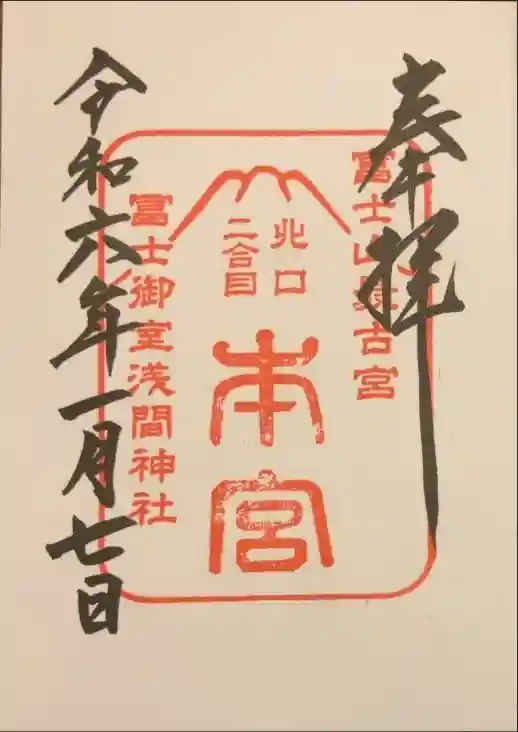 奉拝
富士山最古宮
北口
二合目
本宮
冨士御室浅間神社
令和六年一月七日